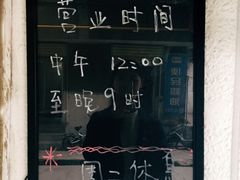 营业时间
中午 12:00
至晚9时
* 周一休息